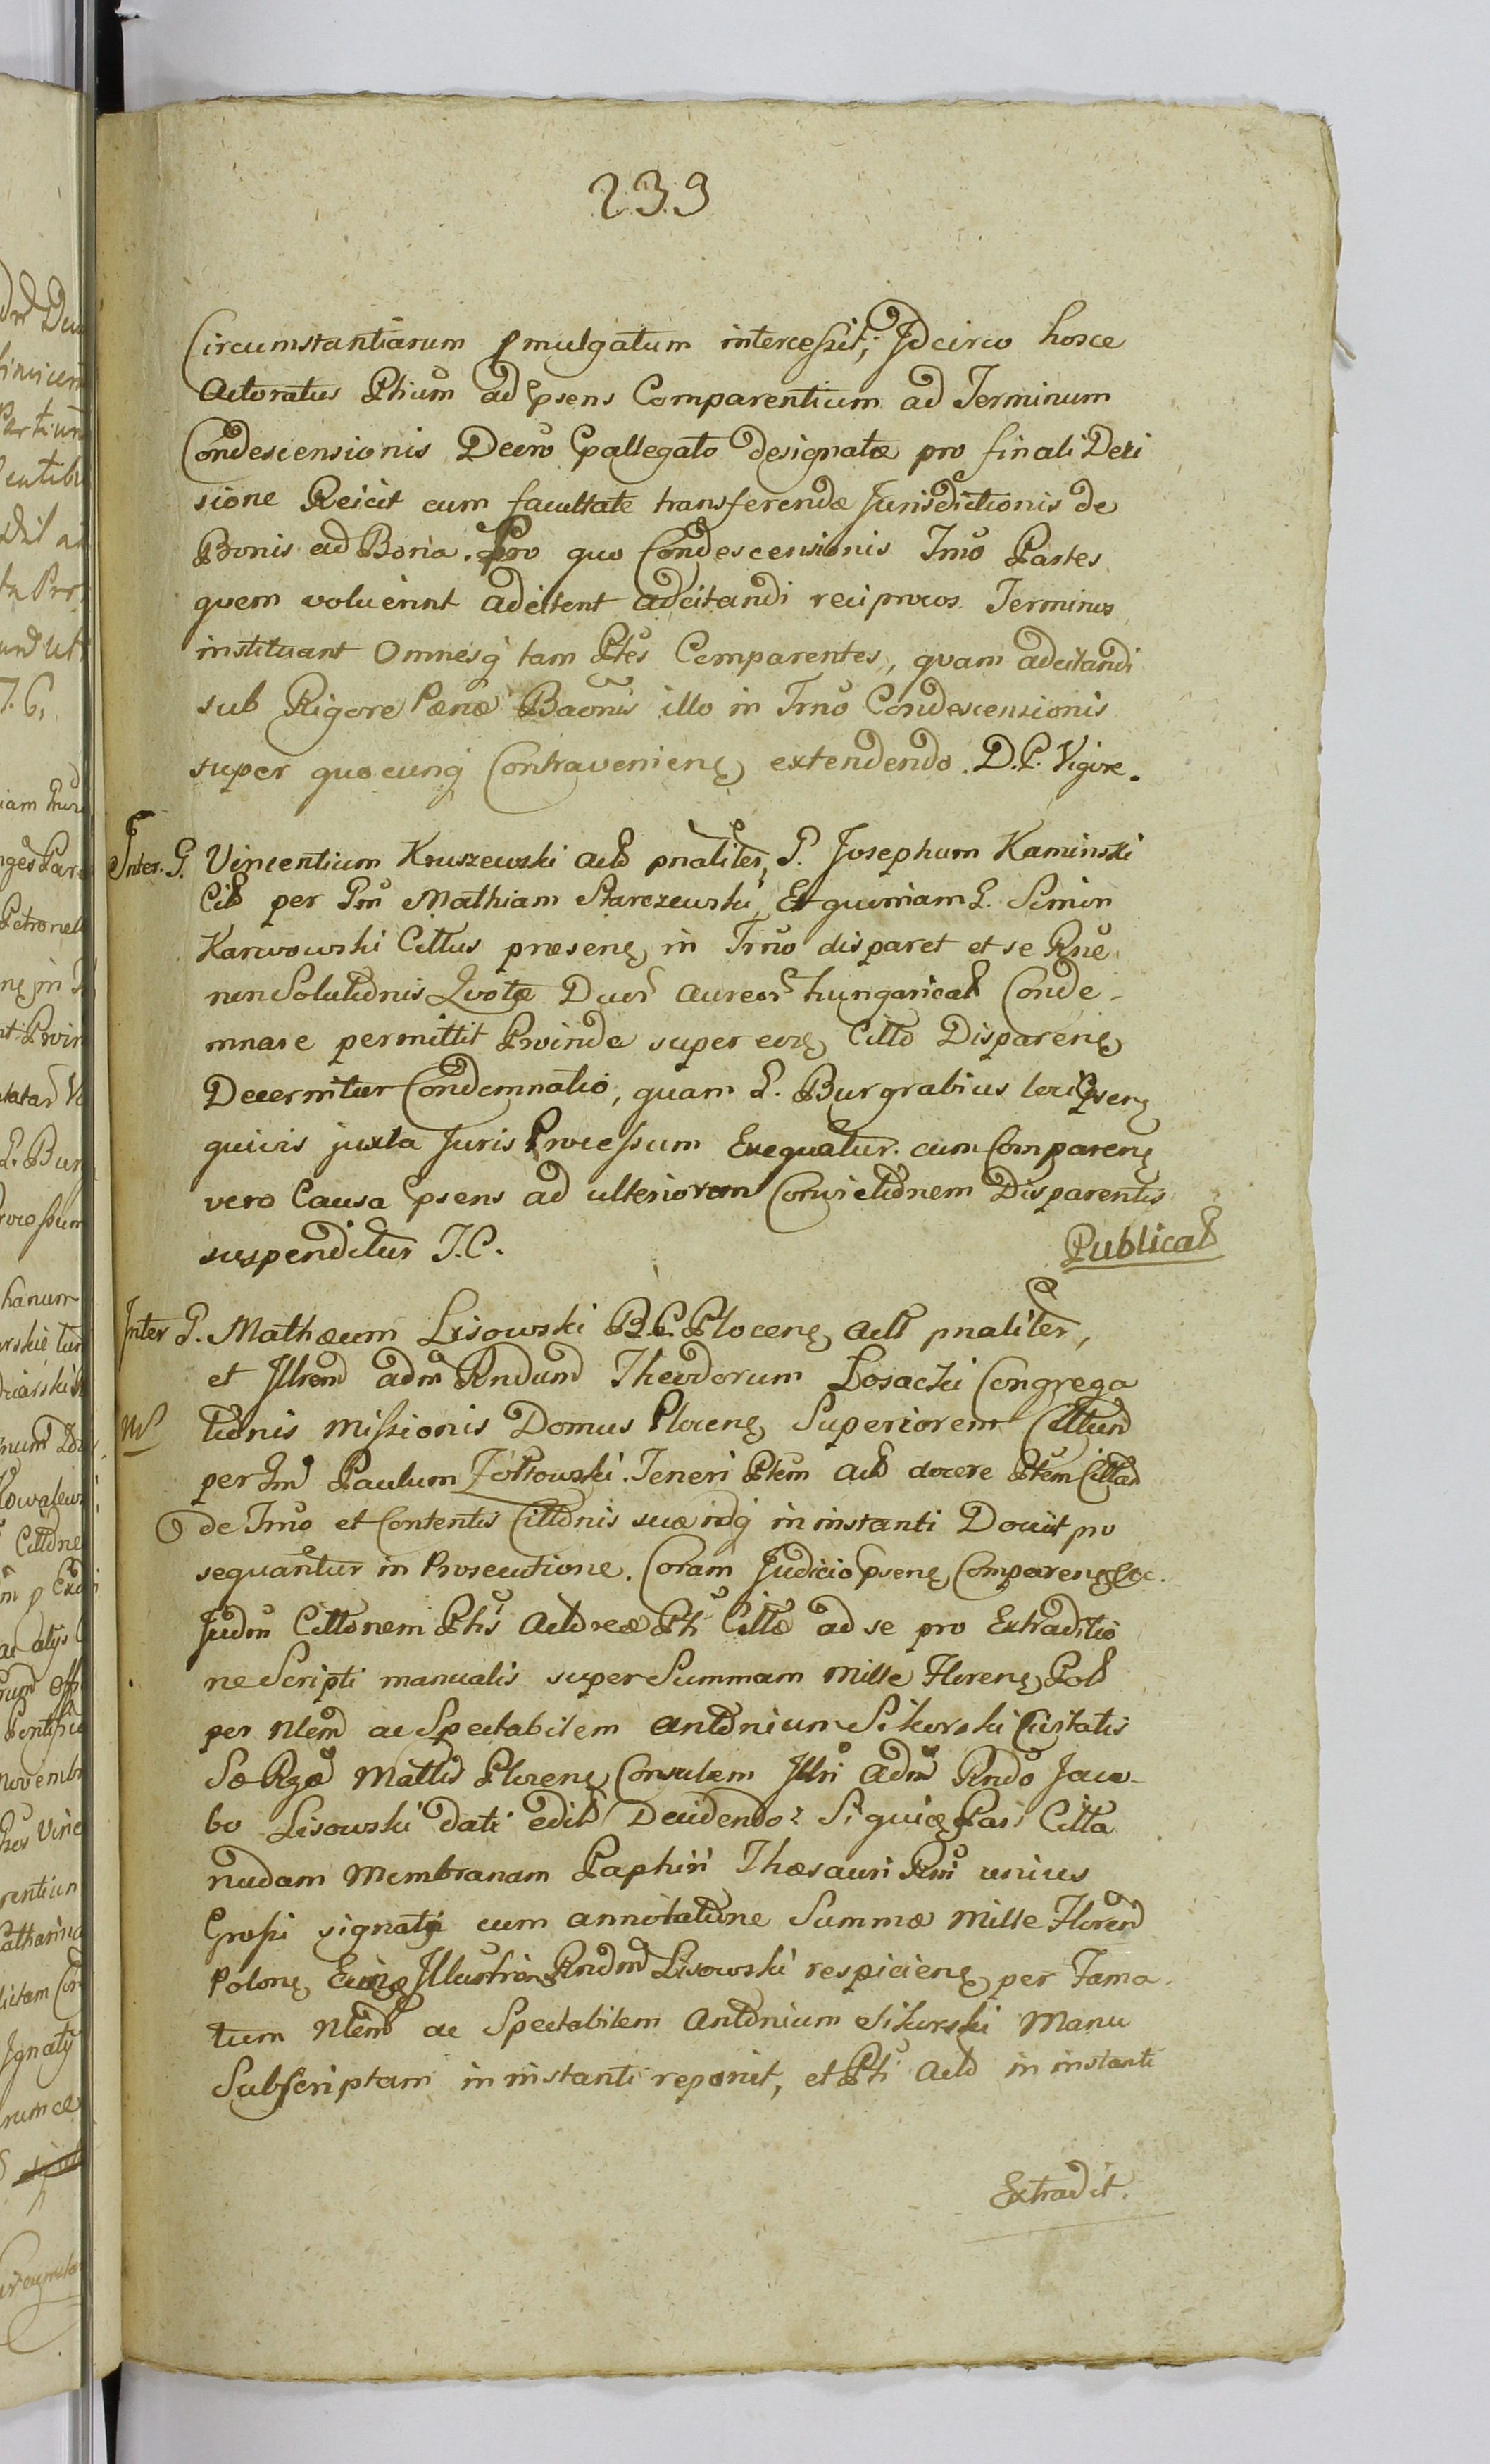 239
Circumstantiarum pmulgatum intercessit, Idcirco hosce
Actoratus Ptium ad psens Comparentium ad Terminum
Condescensionis Decro pallegato designatæ pro finali Deci
sione Reicit cum facultate transferendæ Jurisdictionis de
Bonis ad Bona. Pro quo Condescensionis Tmo Partes
quem voluerint adcitent adcitandi reciprocos Terminos
instituant Omnesq tam Ptes Comparentes, quam adcitandi
sub Rigore Pænæ Baonis illo in Trno Condescensionis
super quocunq Contravenieng extendendo. D. P. Vigore.
Inter. G. Vincentium Kruszewski actb pnaliter, P. Josephum Kaminski
Citt per Gm Mathiam Starczewski, Et quoniam G. Simon
Karwowski Cittus præseng in Trno disparet et se Rne
non Solutionis Quotæ Duor aureor hungarical Conde-
mnare permittit Proinde super eoz Citto Dispareng
Decernitur Condemnatio, quam G. Burgrabius loci pseng
quivis juxta Juris Processum Exequatur. cum Compareng
vero Causa psens ad ulteriorem Convictionem Disparentis
suspenditur J. C.
Publicat
Inter G. Mathæum Lisowski B. C. Ploceng actb pnaliter,
et Illrem adm Rndum Theodorum Losacki Congrega
NS tionis Missionis Domus Ploceng Superiorem Cittum
per Gm Paulum Zółtowski. Teneri Ptem actb docere Ptem Cittad
de Trno et Contentis Cittonis suæ idq in instanti Docuit pro
sequantur in Prosecutione. Coram Judicio pseng Compareng &c.
Judm Cittonem Ptis actoreæ Pti Cittæ ad se pro Extraditio
ne Scripti manualis super Summam mille Floreng Pol
per Nlem ac Spectabilem Antonium Sikorski Civitatis
Sæ Rgæ Mattis Ploceng Consulem Illri adm Rndo Jaco-
bo Lisowski dati edit Decidendo: Si quidem Pars Citta
nudam Membranam Paphiri Thæsauri Rni unius
Grossi signatj cum annotatione Summæ mille Floren
Polong Illustrem Rndm Lisowski respicieng per Fama
tum Nlem ac Spectabilem Antonium Sikorski Manu
Subscriptam in instanti reponit, et Pti actb in instanti
Extradit.